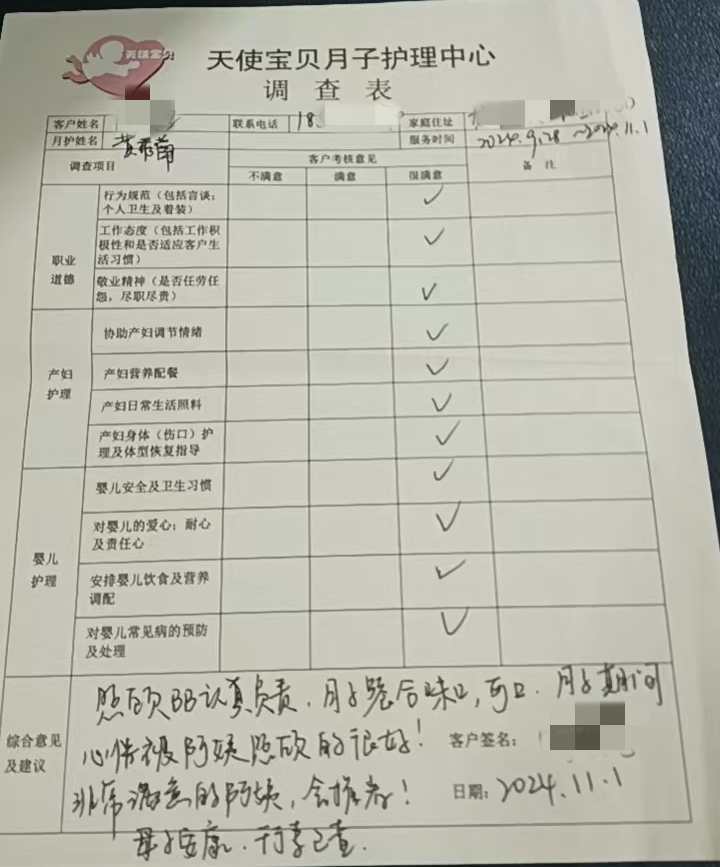 天使宝贝
天使宝贝月子护理中心
调 查 表
客户姓名 联系电话 18 家庭住址
月护姓名 黄 服务时间 2024.9.28 ~2024.11.1
调查项目 客户考核意见 备 注
不满意 满意 很满意
职业
道德
行为规范（包括言谈；
个人卫生及着装） ✓
工作态度（包括工作积
极性和是否适应客户生
活习惯） ✓
敬业精神（是否任劳任
怨，尽职尽责） ✓
产妇
护理
协助产妇调节情绪 ✓
产妇营养配餐 ✓
产妇日常生活照料 ✓
产妇身体（伤口）护
理及体型恢复指导 ✓
婴儿
护理
婴儿安全及卫生习惯 ✓
对婴儿的爱心；耐心
及责任心 ✓
安排婴儿饮食及营养
调配 ✓
对婴儿常见病的预防
及处理 ✓
综合意见
及建议
照顾BB认真负责，月子餐合味口，可口．月子期间
心情被阿姨照顾的很好！
非常满意的阿姨，会推荐！
母子安康．
客户签名：
日期：2024.11.1